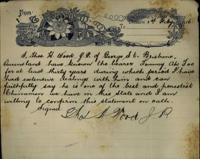 I Thos H Wood J.P. of George St. Brisbane
Queensland have known the bearer Tommy Ah Foo
for at least thirty years during which period I have
had extensive dealings with him and can
faithfully say he is one of the best and honestest
Chinamen we have in this State and I am
willing to confirm this statement on oath.
Signed
Thos H Wood J.P.